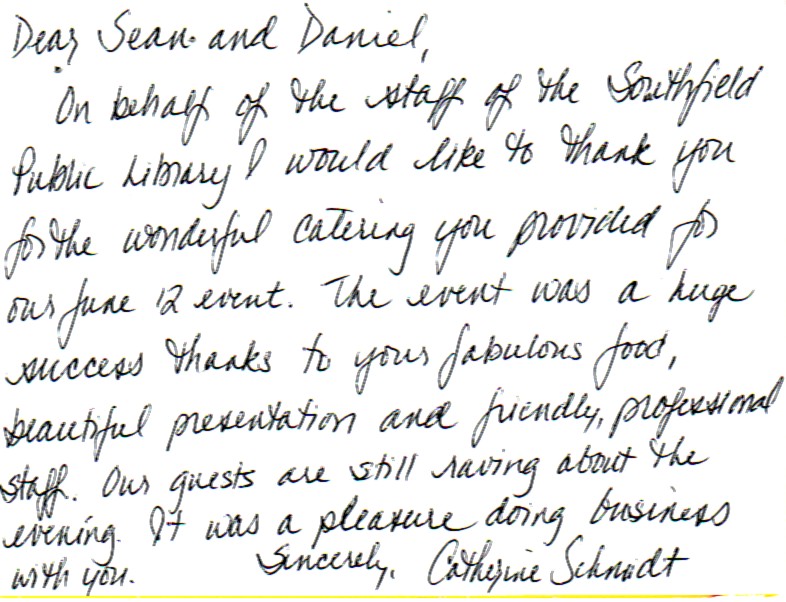 Dear Sean and Daniel,
On behalf of the staff of the Southfield
Public Library I would like to thank you
for the wonderful catering you provided for
our June 12 event. The event was a huge
success thanks to your fabulous food,
beautiful presentation and friendly, professional
staff. Our guests are still raving about the
evening. It was a pleasure doing business
with you. Sincerely, Catherine Schmidt